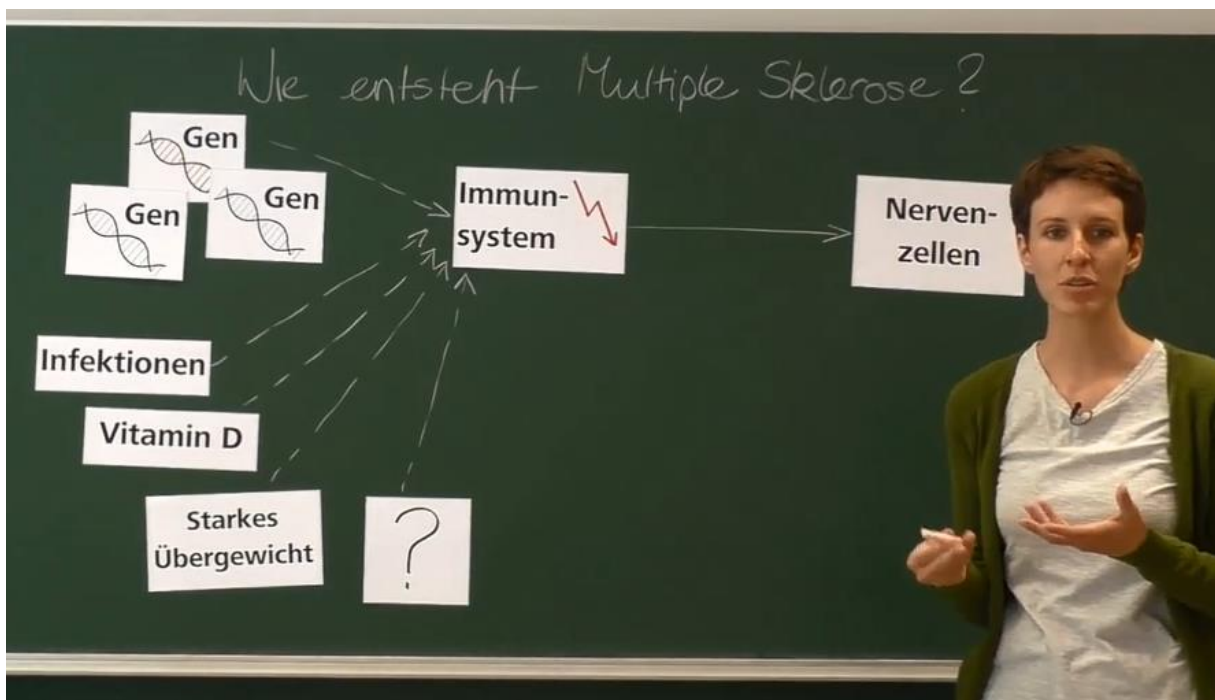 Wie entsteht Multiple Sklerose?
Gen
Gen
Gen
Immun-
system
Nerven-
zellen
Infektionen
Vitamin D
Starkes
Übergewicht
?